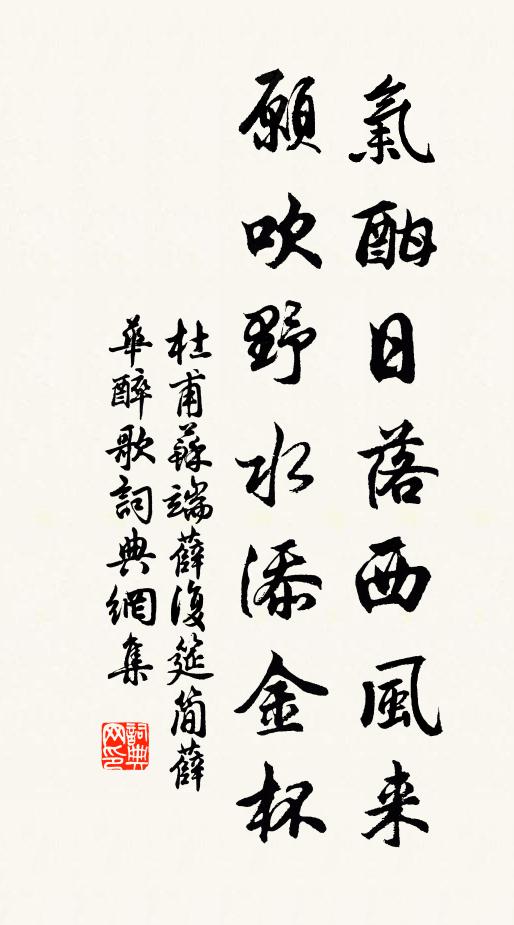 氣酣日落西風来
願吹野水添金杯
杜甫蘇端薛復筵簡薛
華醉歌詞典網集
詞典
网印